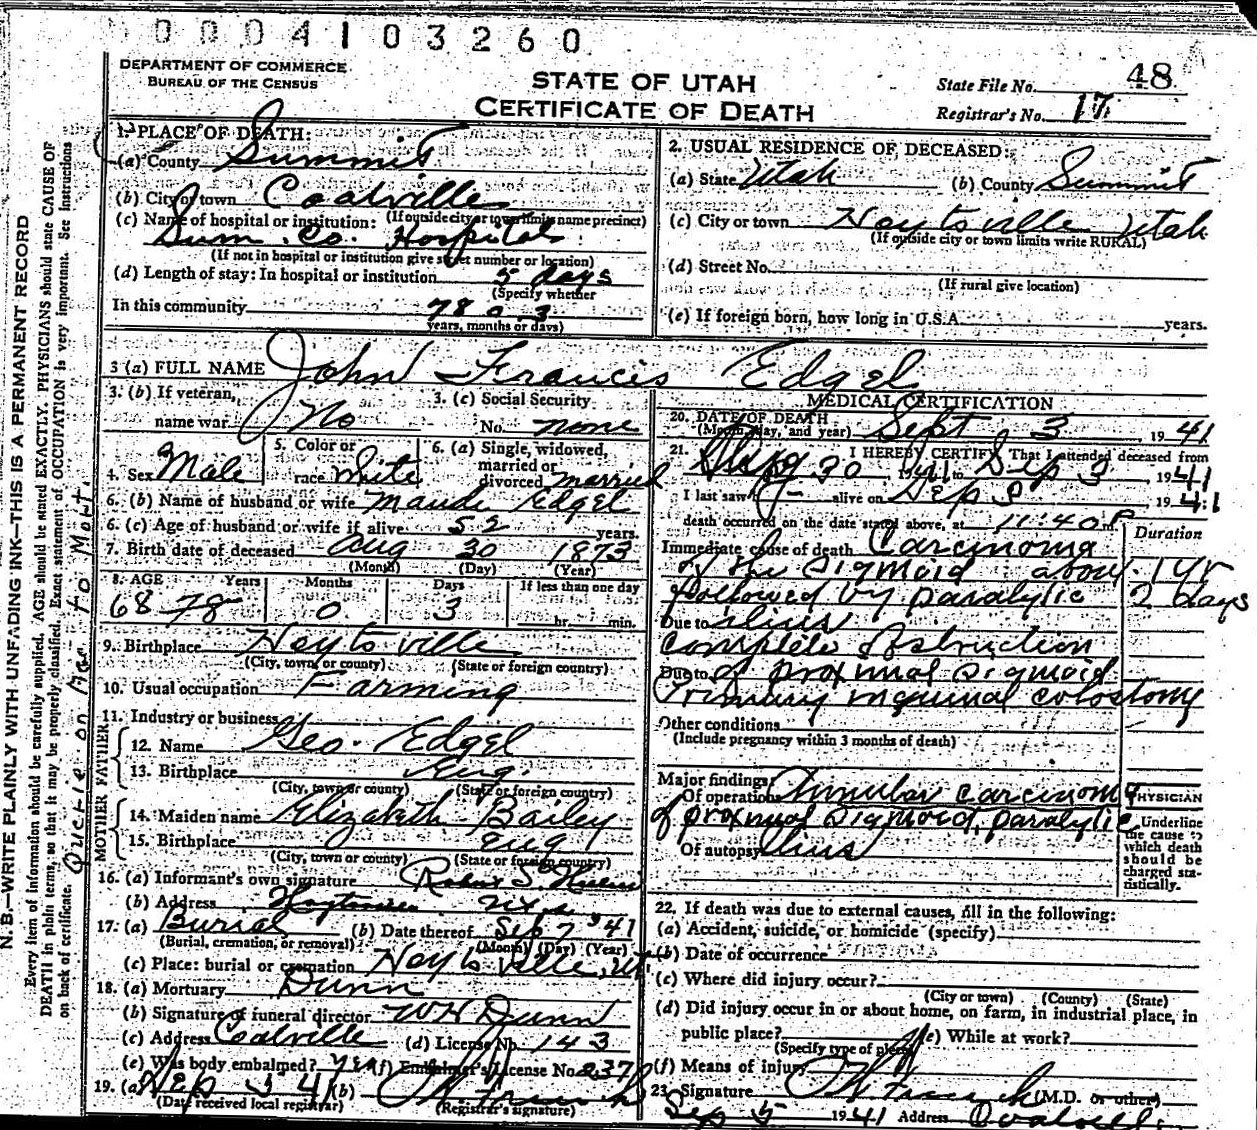 0004103260
DEPARTMENT OF COMMERCE
BUREAU OF THE CENSUS
STATE OF UTAH
CERTIFICATE OF DEATH
State File No. 48
Registrar's No. 17
N. B.—WRITE PLAINLY WITH UNFADING INK—THIS IS A PERMANENT RECORD
Every item of information should be carefully supplied. AGE should be stated EXACTLY. PHYSICIANS should state CAUSE OF
DEATH in plain terms, so that it may be properly classified. Exact statement of OCCUPATION is very important. See instructions
on back of certificate. Querie on Age to Mort.
1. PLACE OF DEATH:
(a) County Summit
(b) City or town Coalville
(If outside city or town limits name precinct)
(c) Name of hospital or institution:
Sum. Co. Hospital
(If not in hospital or institution give street number or location)
(d) Length of stay: In hospital or institution 5 days
(Specify whether
In this community 78 0 3
years, months or days)
2. USUAL RESIDENCE OF DECEASED:
(a) State Utah (b) County Summit
(c) City or town Hoytsville Utah
(If outside city or town limits write RURAL)
(d) Street No.
(If rural give location)
(e) If foreign born, how long in U.S.A. years.
3 (a) FULL NAME John Francis Edgel
3. (b) If veteran, name war No
3. (c) Social Security No. none
4. Sex Male
5. Color or race White
6. (a) Single, widowed, married or divorced married
6. (b) Name of husband or wife Maude Edgel
6. (c) Age of husband or wife if alive 52 years.
7. Birth date of deceased Aug 30 1873
(Month) (Day) (Year)
8. AGE Years Months Days If less than one day
68 78 0 3 hr. min.
9. Birthplace Hoytsville
(City, town or county) (State or foreign country)
10. Usual occupation Farming
11. Industry or business
FATHER
12. Name Geo. Edgel
13. Birthplace Eng.
(City, town or county) (State or foreign country)
MOTHER
14. Maiden name Elizabeth Bailey
15. Birthplace Eng
(City, town or county) (State or foreign country)
16. (a) Informant's own signature
(b) Address
17. (a) Burial (b) Date thereof Sep 7 '41
(Burial, cremation, or removal) (Month) (Day) (Year)
(c) Place: burial or cremation Hoytsville, Ut.
18. (a) Mortuary Dunn
(b) Signature of funeral director WH Dunn
(c) Address Coalville (d) License No. 143
(e) Was body embalmed? yes (f) Embalmer's License No. 237
19. (a) Sep 5 41 (b)
(Date received local registrar) (Registrar's signature)
MEDICAL CERTIFICATION
20. DATE OF DEATH
(Month, day, and year) Sept 3, 1941
21. I HEREBY CERTIFY That I attended deceased from
Aug 30 1941 to Sep 3, 1941
I last saw alive on Sep 3 1941
death occurred on the date stated above, at 11:40 P m.
Duration
Immediate cause of death Carcinoma
of the Sigmoid about 1 yr
followed by paralytic 2 days
Due to ilius
complete obstruction
Due to of proximal sigmoid
Primary inguinal colostomy
Other conditions
(Include pregnancy within 3 months of death)
Major findings:
Of operations Annular carcinoma
of proximal sigmoid, paralytic
Of autopsy ilius
PHYSICIAN
Underline
the cause to
which death
should be
charged sta-
tistically.
22. If death was due to external causes, fill in the following:
(a) Accident, suicide, or homicide (specify)
(b) Date of occurrence
(c) Where did injury occur?
(City or town) (County) (State)
(d) Did injury occur in or about home, on farm, in industrial place, in
public place? (e) While at work?
(Specify type of place)
(f) Means of injury
23. Signature (M.D. or other)
Sep 5 1941 Address Coalville